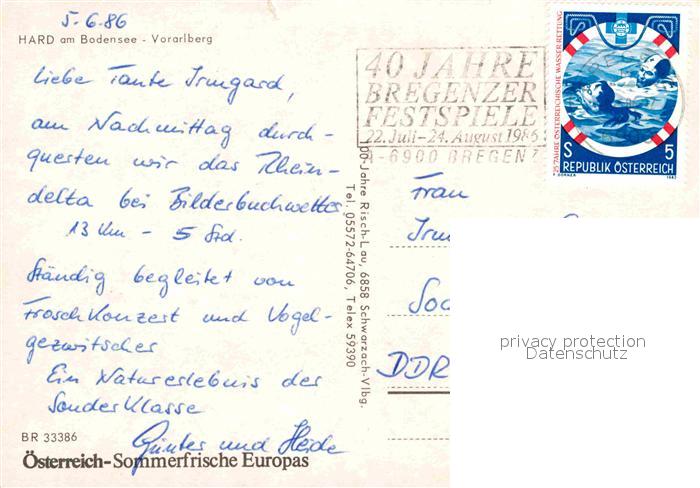 5.6.86
HARD am Bodensee - Vorarlberg
Liebe Tante Irmgard,
am Nachmittag durch-
questen wir das Rhein-
delta bei Bilderbuchwetter
13 Km - 5 Std.
Ständig begleitet von
Froschkonzert und Vogel-
gezwitscher
Ein Naturerlebnis der
Sonderklasse
Günter und Heide
BR 33386
Österreich-Sommerfrische Europas
100-Jahre Risch-Lau, 6858 Schwarzach-Vlbg.
Tel. 05572-64706, Telex 59390
40 JAHRE
BREGENZER
FESTSPIELE
22. Juli-24. August 1986
A-6900 BREGENZ
25 JAHRE ÖSTERREICHISCHE WASSER-RETTUNG
S 5
REPUBLIK ÖSTERREICH
1982
Frau
DDR
privacy protection
Datenschutz